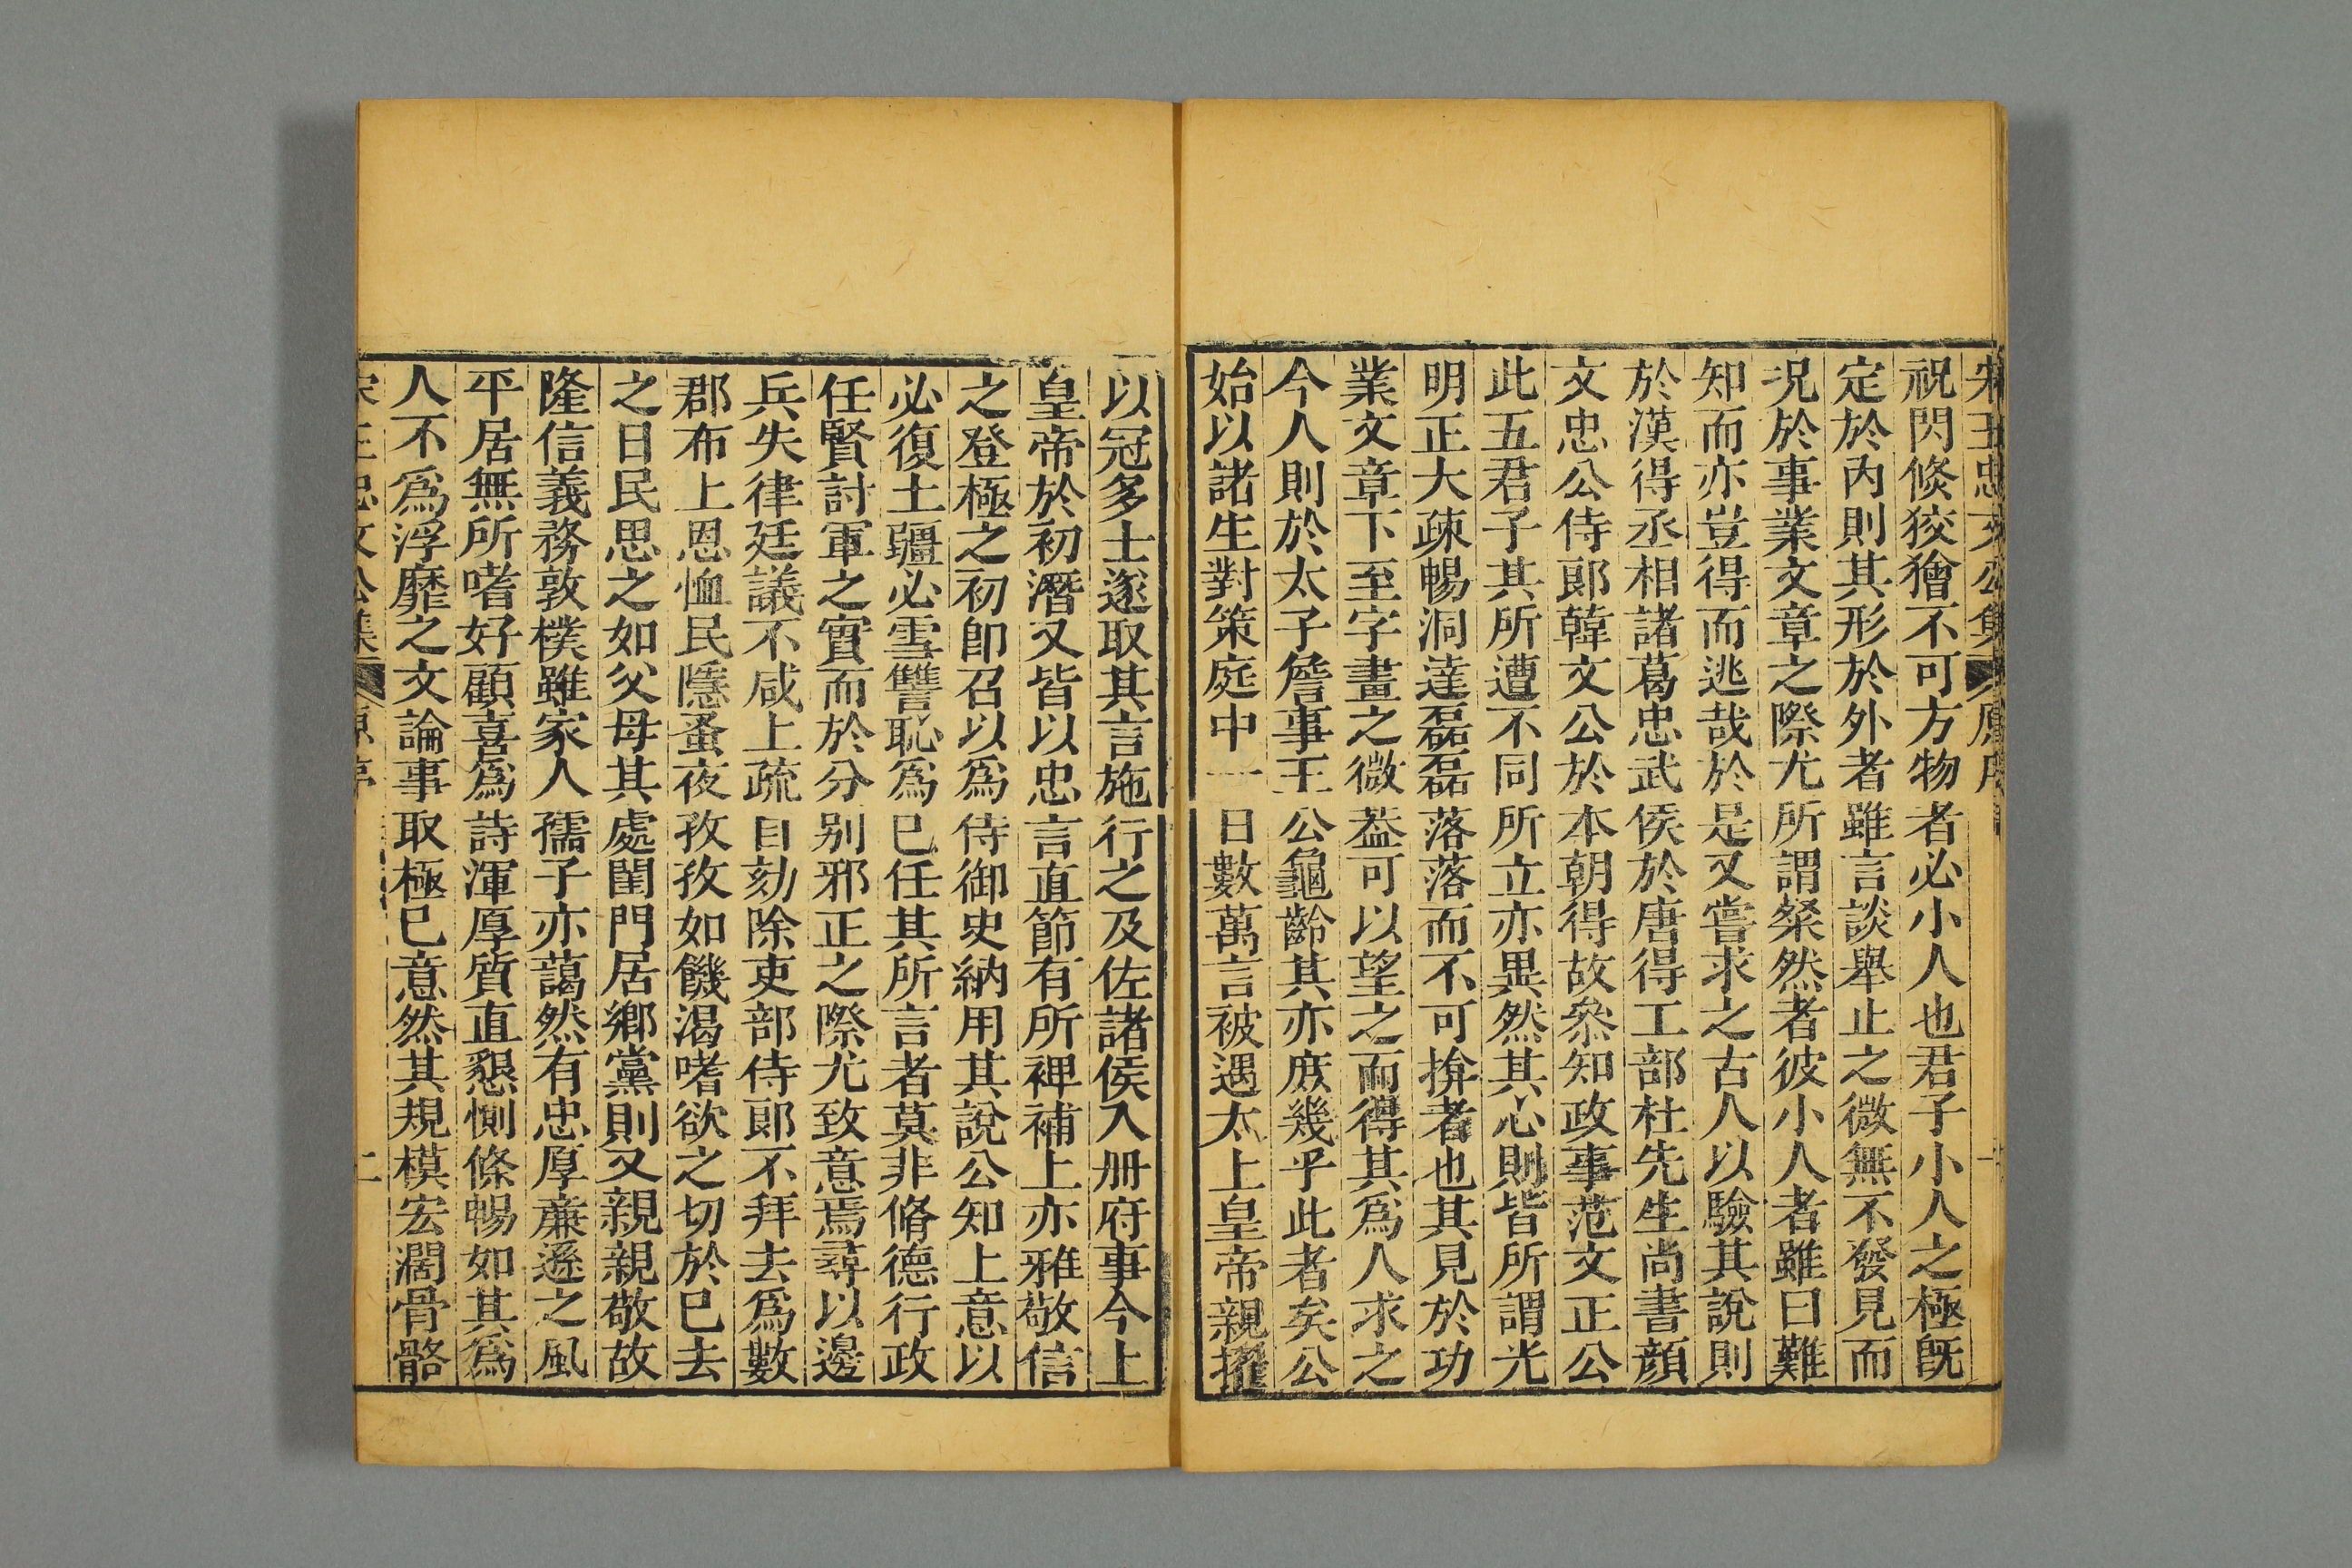 宋王忠文公集 原序
祝閃倐狡獪不可方物者必小人也君子小人之極旣
定於內則其形於外者雖言談舉止之微無不發見而
況於事業文章之際尤所謂粲然者彼小人者雖曰難
知而亦豈得而逃哉於是又嘗求之古人以驗其說則
於漢得丞相諸葛忠武侯於唐得工部杜先生尚書顔
文忠公侍郎韓文公於本朝得故叅知政事范文正公
此五君子其所遭不同所立亦異然其心則皆所謂光
明正大疎暢洞達磊磊落落而不可揜者也其見於功
業文章下至字畫之微葢可以望之而得其爲人求之
今人則於太子詹事王公龜齡其亦庶幾乎此者矣公
始以諸生對策庭中一日數萬言被遇太上皇帝親擢
以冠多士遂取其言施行之及佐諸侯入册府事今上
皇帝於初潛又皆以忠言直節有所裨補上亦雅敬信
之登極之初卽召以爲侍御史納用其說公知上意以
必復土疆必雪讐恥爲已任其所言者莫非脩德行政
任賢討軍之實而於分别邪正之際尤致意焉尋以邊
兵失律廷議不咸上疏自劾除吏部侍郎不拜去爲數
郡布上恩恤民隱蚤夜孜孜如饑渴嗜欲之切於已去
之日民思之如父母其處閨門居鄉黨則又親親敬故
隆信義務敦樸雖家人孺子亦藹然有忠厚亷遜之風
平居無所嗜好顧喜爲詩渾厚質直懇惻條暢如其爲
人不爲浮靡之文論事取極已意然其規模宏濶骨骼
宋王忠文公集 原序 二